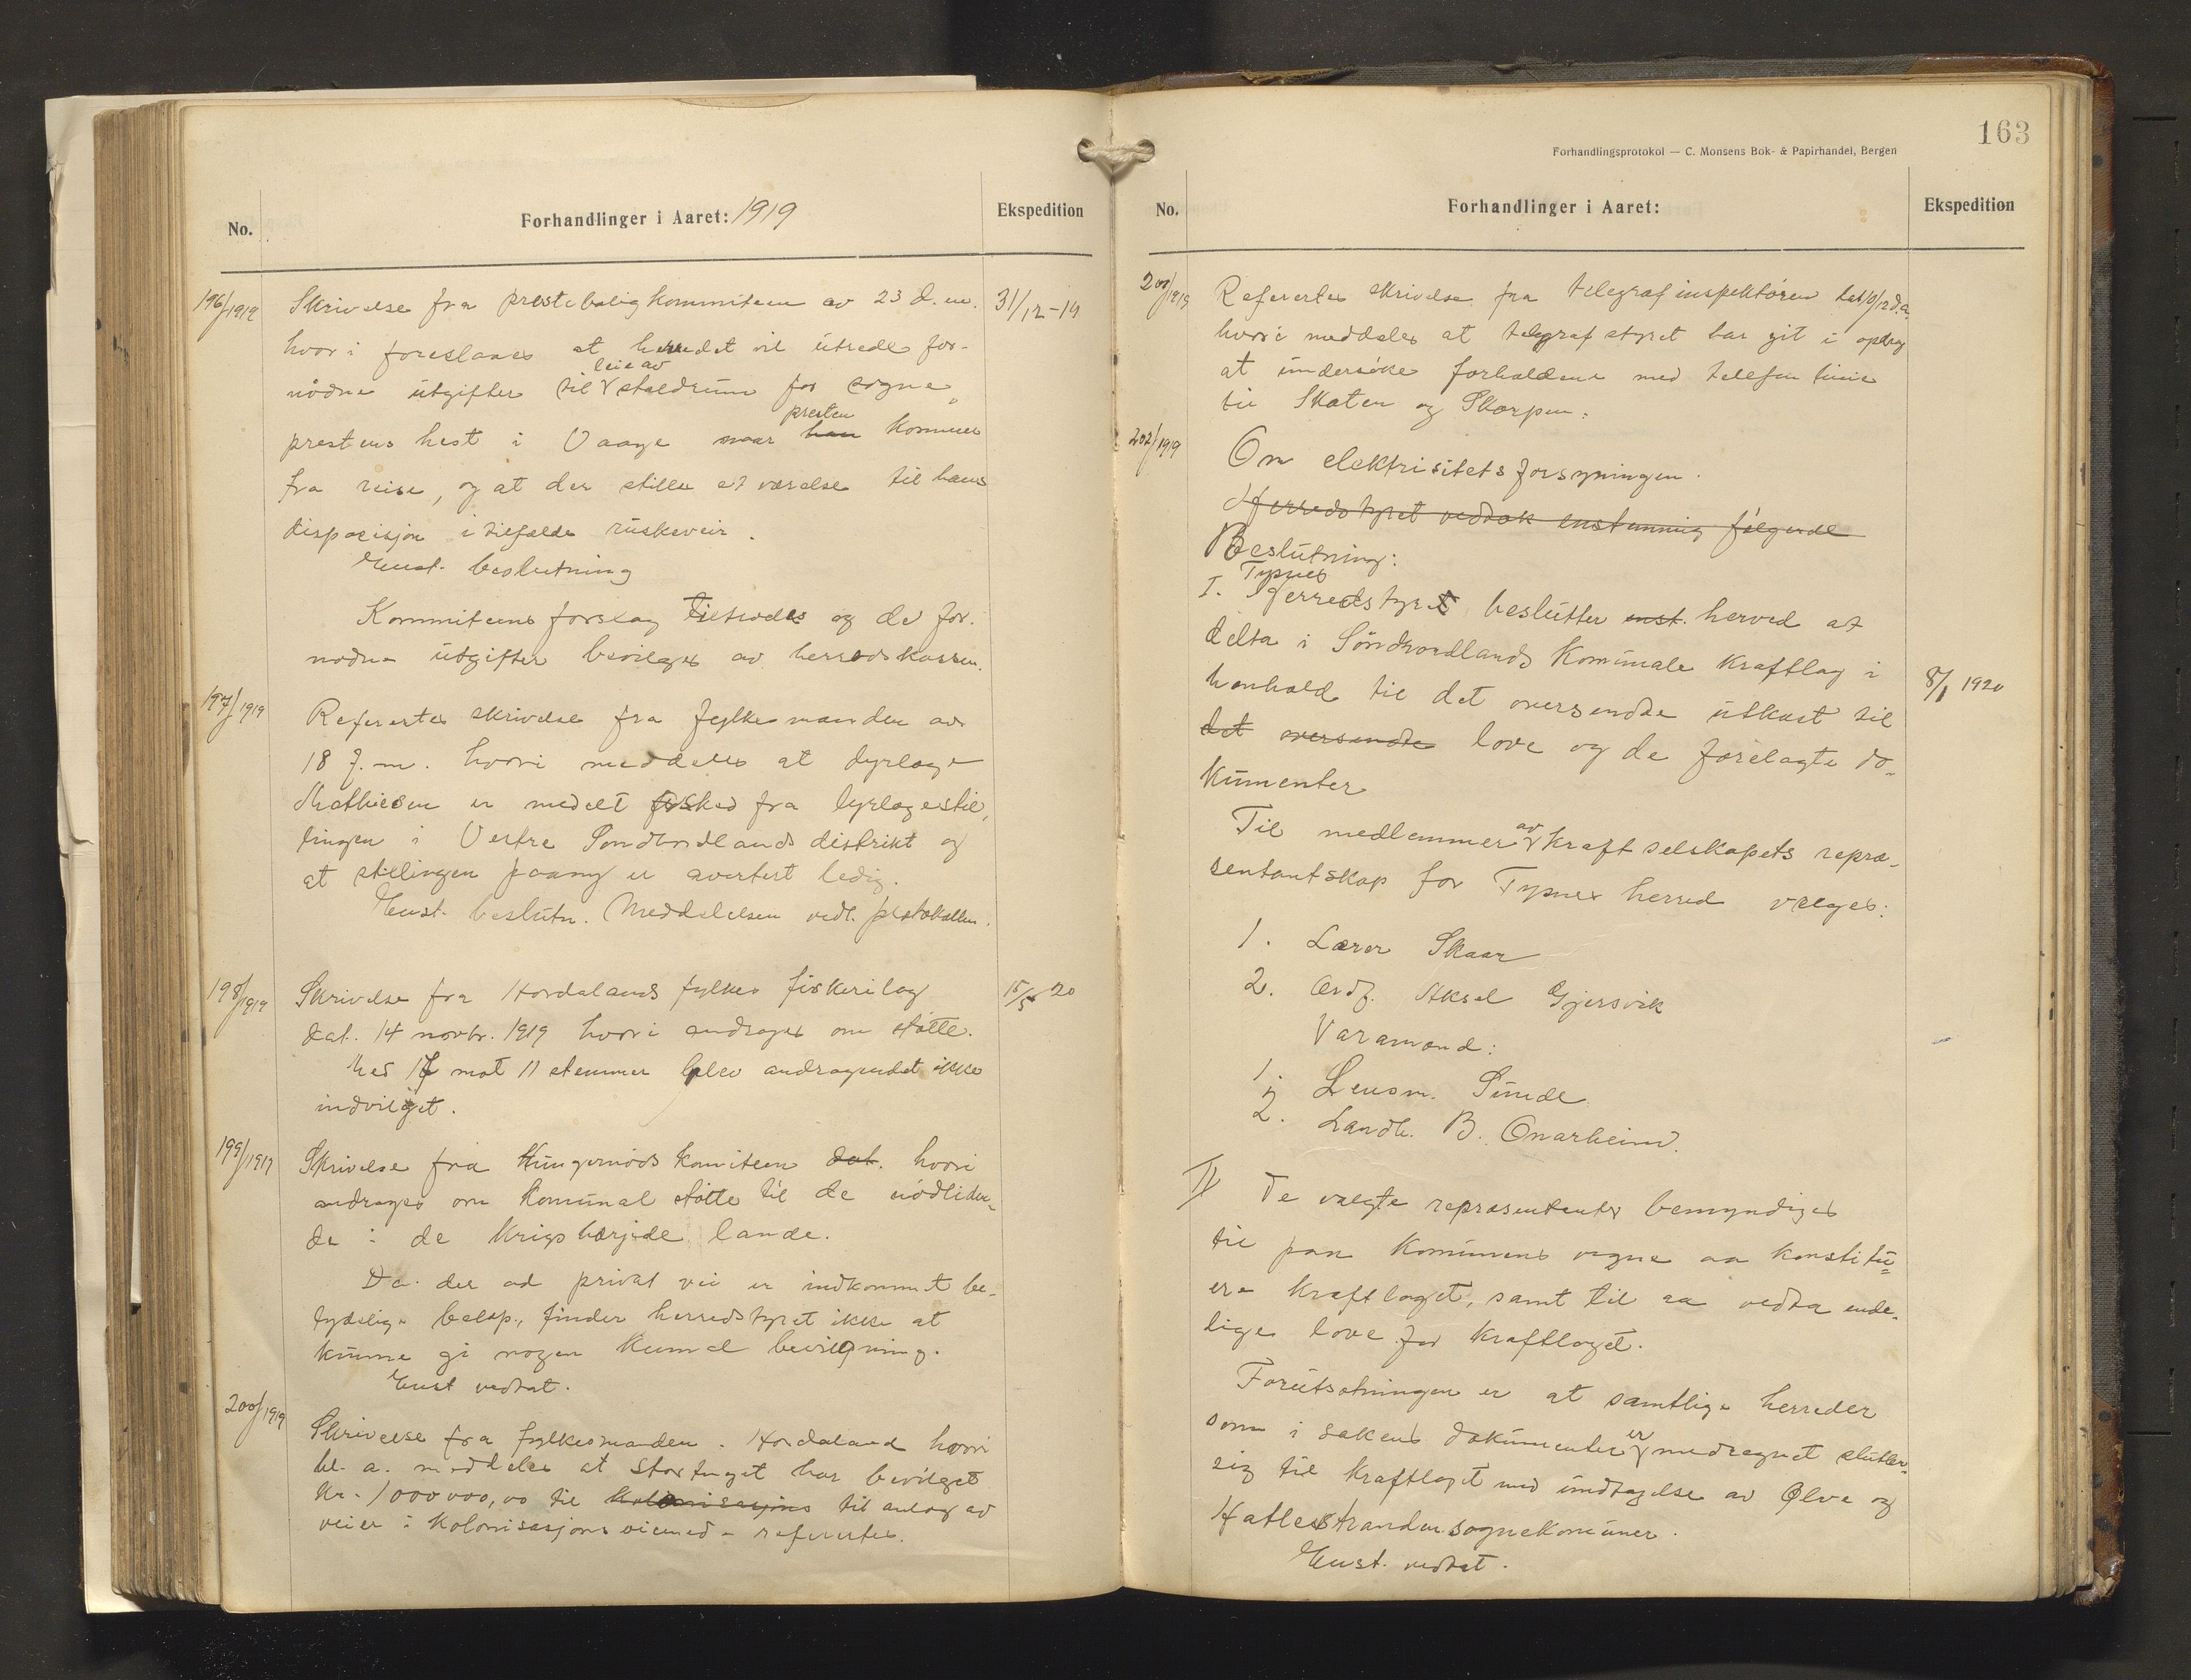 No.
Forhandlinger i Aaret: 1919
Ekspedition
196/1919
Skrivelse fra prestebolig kommiteen av 23 d.m.
31/12-19
hvori foreslaaes at herredet vil utrede for-
leie av
nødne utgifter til staldrum for sogne-
presten
prestens hest i Vaage naar han kommer
fra reise, og at der stilles et værelse til hans
disposisjon i tilfælde ruskeveir.
Enst. beslutning
Kommiteens forslag tiltrædes og de for-
nødne utgifter bevilges av herredskassen.
197/1919
Refertes skrivelse fra fylkesmanden av
18 f.m. hvori meddeles at dyrlæge
Mathiesen er meddelt avsked fra dyrlægestil-
lingen i Vestre Søndhordlands distrikt og
at stillingen paany er avertert ledig.
Enst. beslutn. Meddelelsen vedl. protokollen.
198/1919
Skrivelse fra Hordalands fylkes fiskerilag
15/5 20
dat. 14 novbr. 1919 hvori andrages om støtte.
Med 17 mot 11 stemmer blev andragendet ikke
indvilget.
199/1919
Skrivelse fra Hungernøds komiteen dat. hvori
andrages om komunal støtte til de nødliden-
de i de krigshærjede lande.
Da der ad privat vei er indkommet be-
tydelige beløp, finder herredstyret ikke at
kunne gi nogen kumal bevilgning.
Enst vedtat.
200/1919
Skrivelse fra fylkesmanden i Hordaland hvori
bl. a. meddeles at Stortinget har bevilget
Kr. 1000000,00 til kolonisasjons til anlæg av
veier i kolonisasjonsøiemed - refertes.
163
Forhandlingsprotokol — C. Monsens Bok- & Papirhandel, Bergen
No.
Forhandlinger i Aaret:
Ekspedition
200/1919
Refertes skrivelse fra telegrafinspektøren dat 10/12 d.a.
hvori meddeles at telegrafstyret har git i opdrag
at undersøke forholdene med telefon linie
til Skaten og Skorpen.
202/1919
Om elektrisitetsforsyningen.
Herredstyret vedtok enstemmig følgende
Beslutning:
Tysnes
I. Herredstyret beslutter enst. herved at
delta i Søndhordlands Komunale Kraftlag i
8/1 1920
henhold til det oversendte utkast til
det oversendte love og de forelagte do-
kumenter
av
Til medlemmer kraftselskapets repræ-
sentantskap for Tysnes herred vælges:
1. Lærer Skaar
2. Ordf. Aksel Gjersvik
Varamænd:
1. Lensm. Sunde
2. Landh. B. Onarheim.
II De valgte repræsentanter bemyndiges
til paa Komunens vegne aa konstitu-
ere kraftlaget, samt til aa vedta ende-
lige love for kraftlaget.
Forutsætningen er at samtlige herreder
er
som i sakens dokumenter medregnet slutter
sig til kraftlaget med undtagelse av Ølve og
Hatlestranden sognekomuner.
Enst. vedtat.